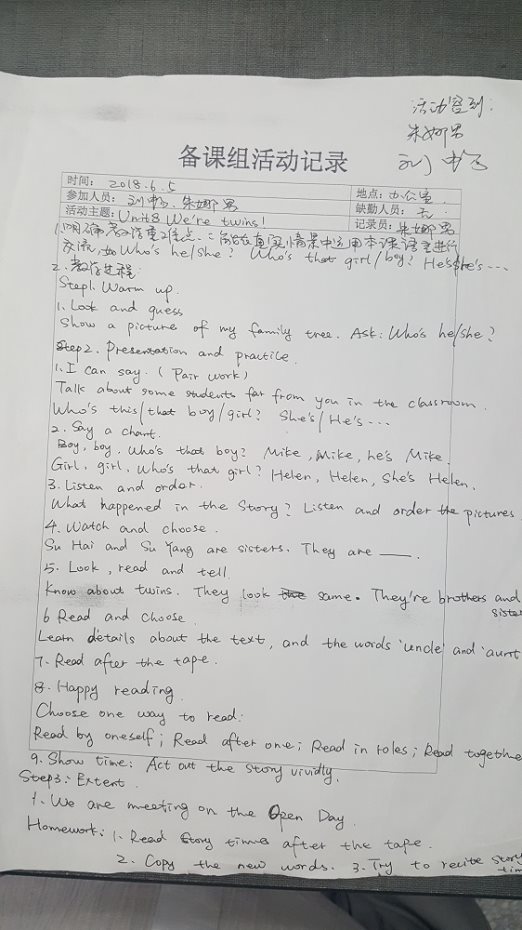 活动签到:
朱娜男
刘
备课组活动记录
时间: 2018.6.5 地点: 办公室
参加人员: 刘 朱娜男 缺勤人员: 无
活动主题: Unit8 We're twins! 记录员: 朱娜男
1.明确教学重难点: 能在真实情景中运用本课语言进行
交流, 如 Who's he/she? Who's that girl/boy? He's/She's...
2. 教学过程:
Step1. Warm up.
1. Look and guess
Show a picture of my family tree. Ask: Who's he/she?
Step2. Presentation and practice.
1. I can say. (Pair work)
Talk about some students far from you in the classroom.
Who's this/that boy/girl? She's/He's...
2. Say a chant.
Boy, boy, Who's that boy? Mike, Mike, he's Mike.
Girl, girl, Who's that girl? Helen, Helen, She's Helen.
3. Listen and order.
What happened in the Story? Listen and order the pictures
4. Watch and choose.
Su Hai and Su Yang are sisters. They are ___.
5. Look, read and tell.
Know about twins. They look same. They're brothers and
siste
6 Read and choose.
Learn details about the text, and the words 'uncle' and 'aunt
7. Read after the tape.
8. Happy reading.
Choose one way to read:
Read by oneself; Read after one; Read in roles; Read togethe
9. Show time: Act out the story vividly.
Step3: Extent.
1. We are meeting on the Open Day.
Homework: 1. Read Story time after the tape.
2. Copy the new words. 3. Try to recite story
tim